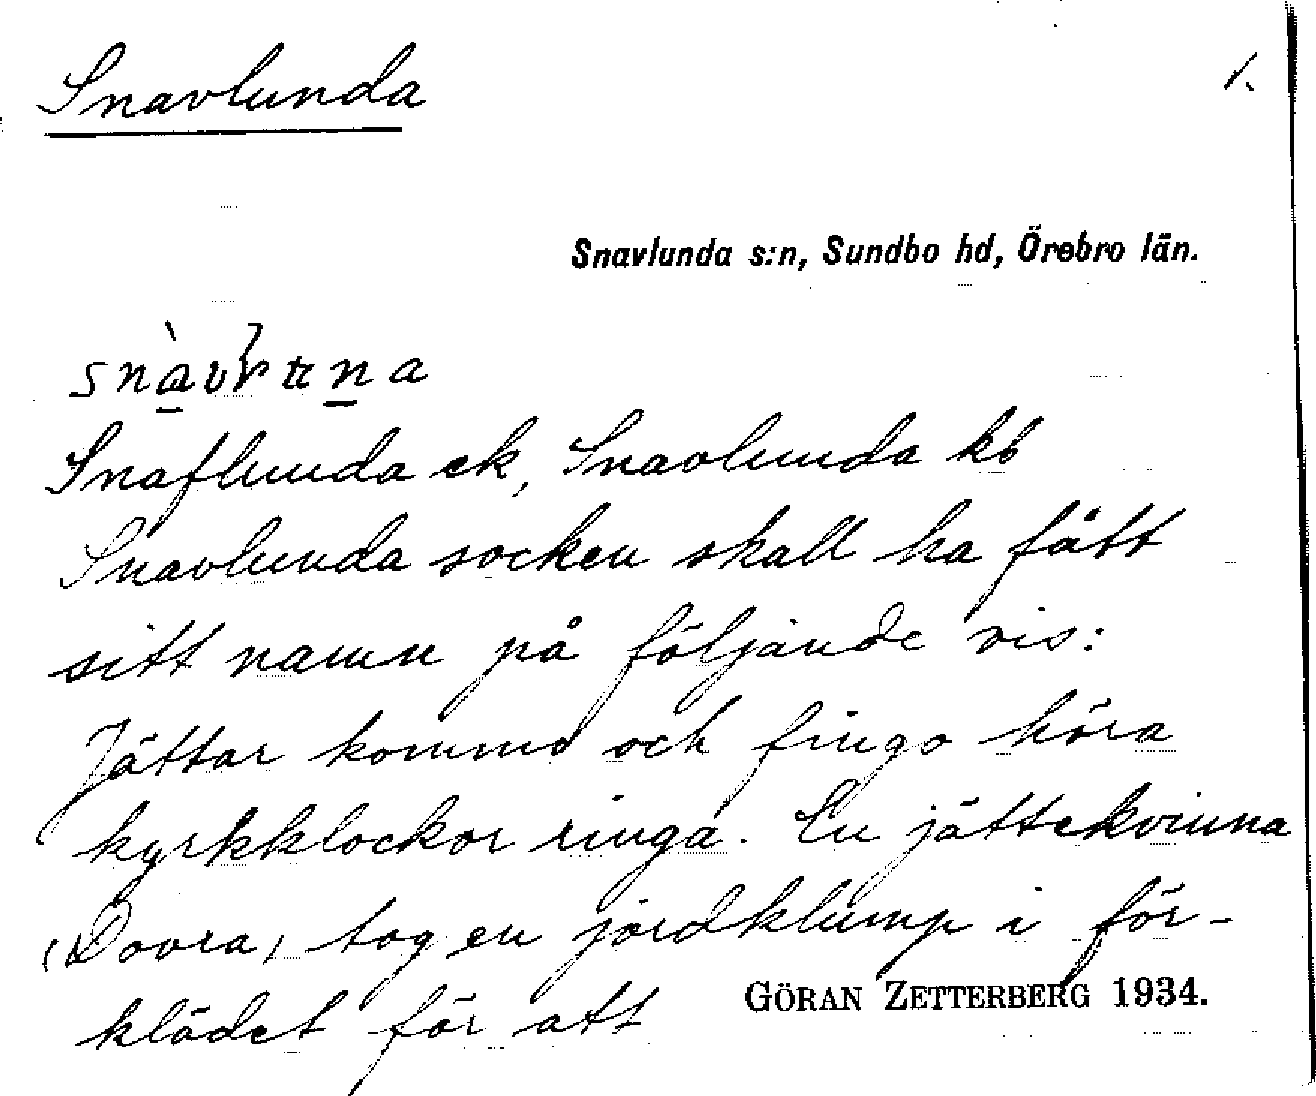 Snavlunda
1.
Snavlunda s:n, Sundbo hd, Örebro län.
Snaflunda ek, Snavlunda kb
Snavlunda socken skall ha fått
sitt namn på följande vis:
Jättar kommo och fingo höra
kyrkklockor ringa. En jättekvinna
(Dovra) tog en jordklump i för-
klädet för att
GÖRAN ZETTERBERG 1934.